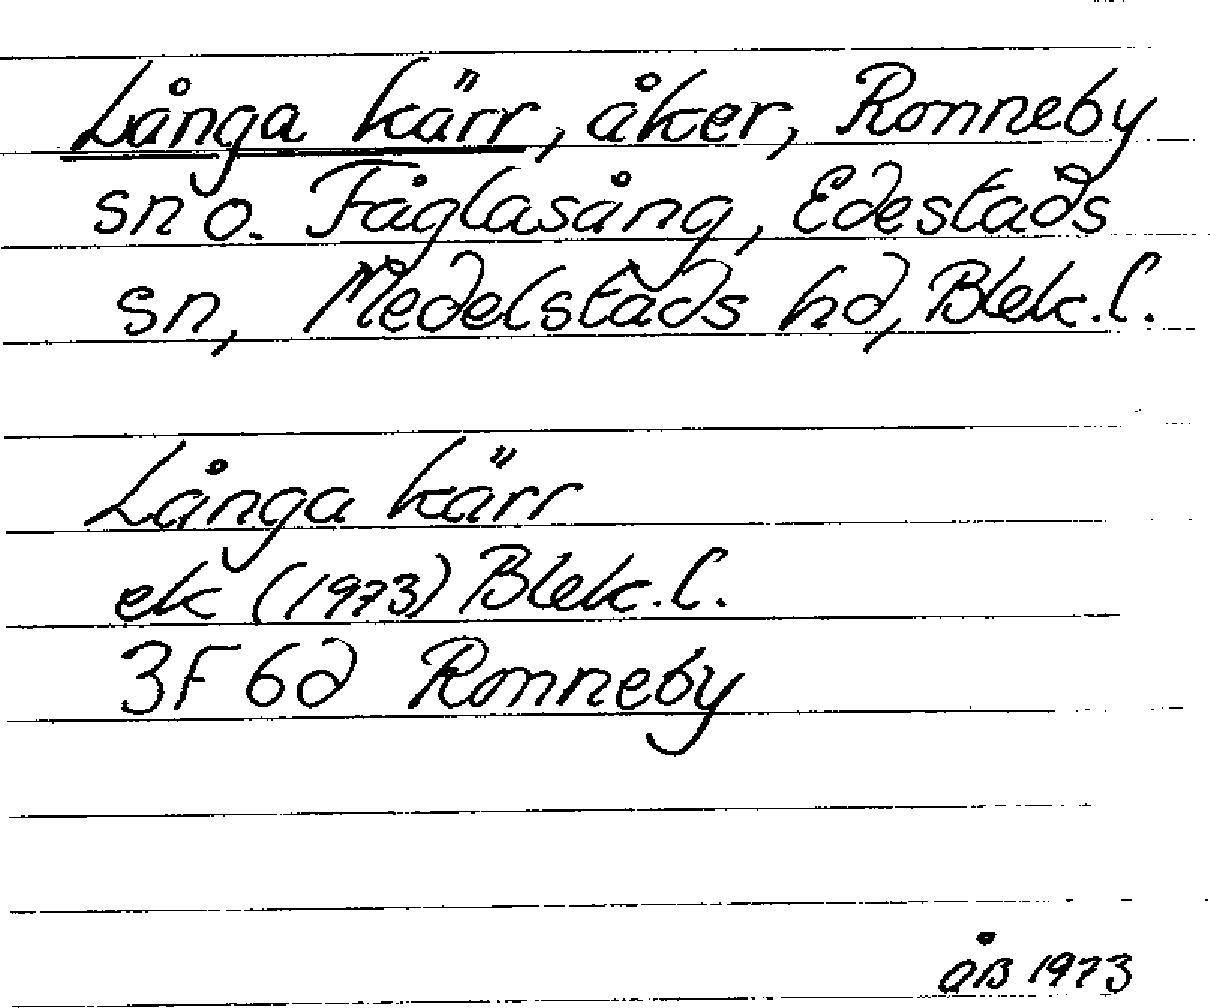 Långa kärr, åker, Ronneby
sn o. Fåglasång, Edestads
sn, Medelstads hd, Blek. l.
Långa kärr
ek (1973) Blek. l.
3F 6d Ronneby
åB 1973